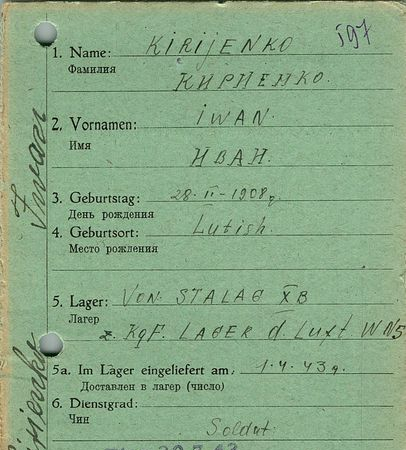 597
1. Name: KIRIJENKO
Фамилия
КИРИЕНКО.
2. Vornamen: IWAN.
Имя
ИВАН.
3. Geburtstag: 28-II-1908г
День рождения
4. Geburtsort: Lutish.
Место рождения
5. Lager: VON STALAG XB
Лагер
z. KgF. LAGER d. Luft. WN5
5a. Im Lager eingeliefert am: 1.4.43g.
Доставлен в лагер (число)
6. Dienstgrad:
Чин
Soldat.
Iwan